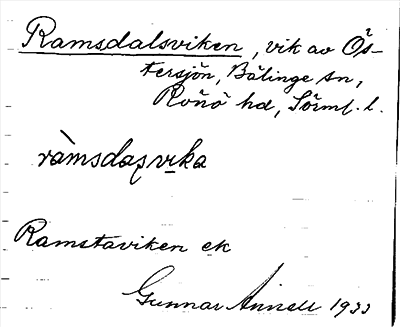 Ramsdalsviken, vik av Ös-
tersjön, Bälinge sn,
Rönö hd, Sörml. l.
ràmsdaʂvi̱ka
Ramstaviken ek
Gunnar Annell 1933